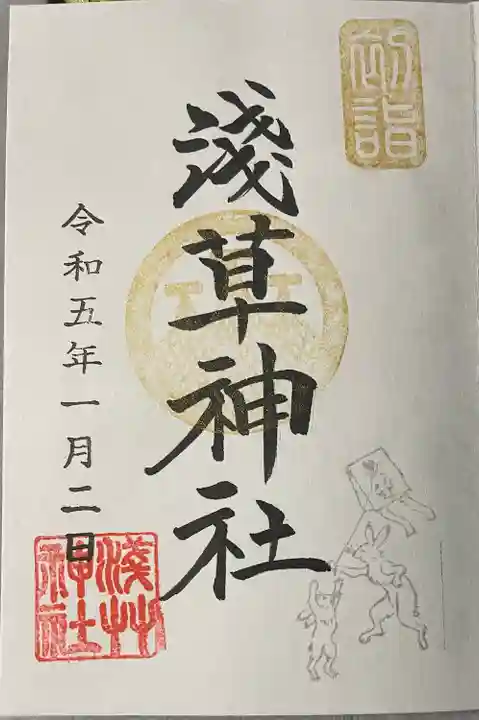 初詣
淺草神社
令和五年一月二日
淺草神社